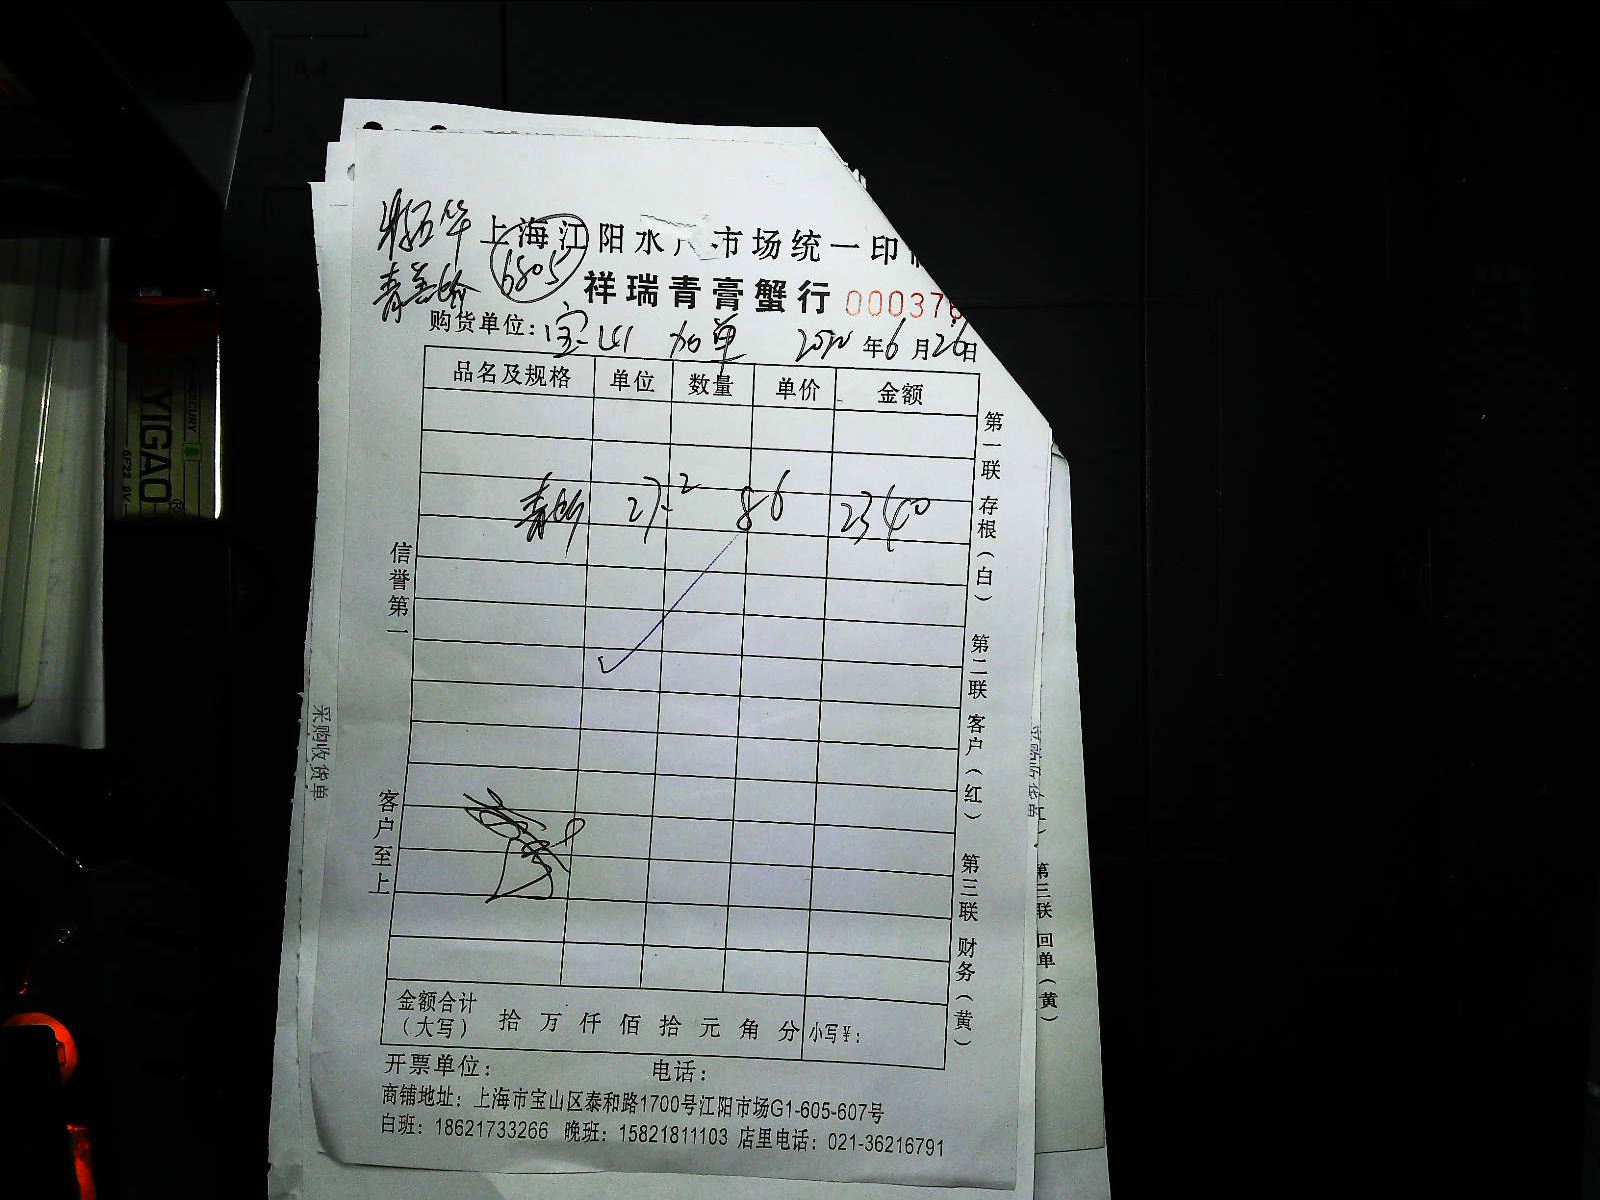 上海江阳水 市场统一印
6805
祥瑞青膏蟹行 00037
购货单位: 宝山 加单 2020年6月26日
品名及规格 单位 数量 单价 金额
27.2 86 2340
信誉第一
客户至上
第一联 存根(白) 第二联 客户(红) 第三联 财务(黄)
金额合计
(大写) 拾 万 仟 佰 拾 元 角 分 小写¥:
开票单位: 电话:
商铺地址: 上海市宝山区泰和路1700号江阳市场G1-605-607号
白班: 18621733266 晚班: 15821811103 店里电话: 021-36216791
采购收货单
第三联 回单(黄)
YIGAO
6F22 9V